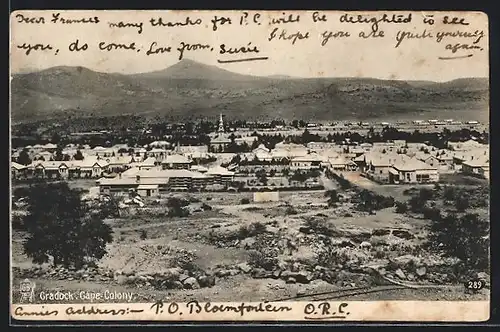 Dear Frances many thanks for P.C. will be delighted to see
you, do come, Love from, Susie
I hope you are quite yourself
again.
Gradock. Cape Colony.
289
Annies address:- P.O. Bloemfontein O.R.C.